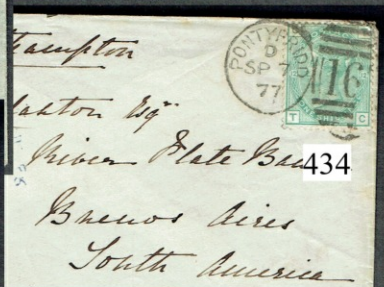 hampton
PONTYPRIDD
D
SP 7
77
116
T C
Esqr
River Plate
434
Buenos Aires
South America